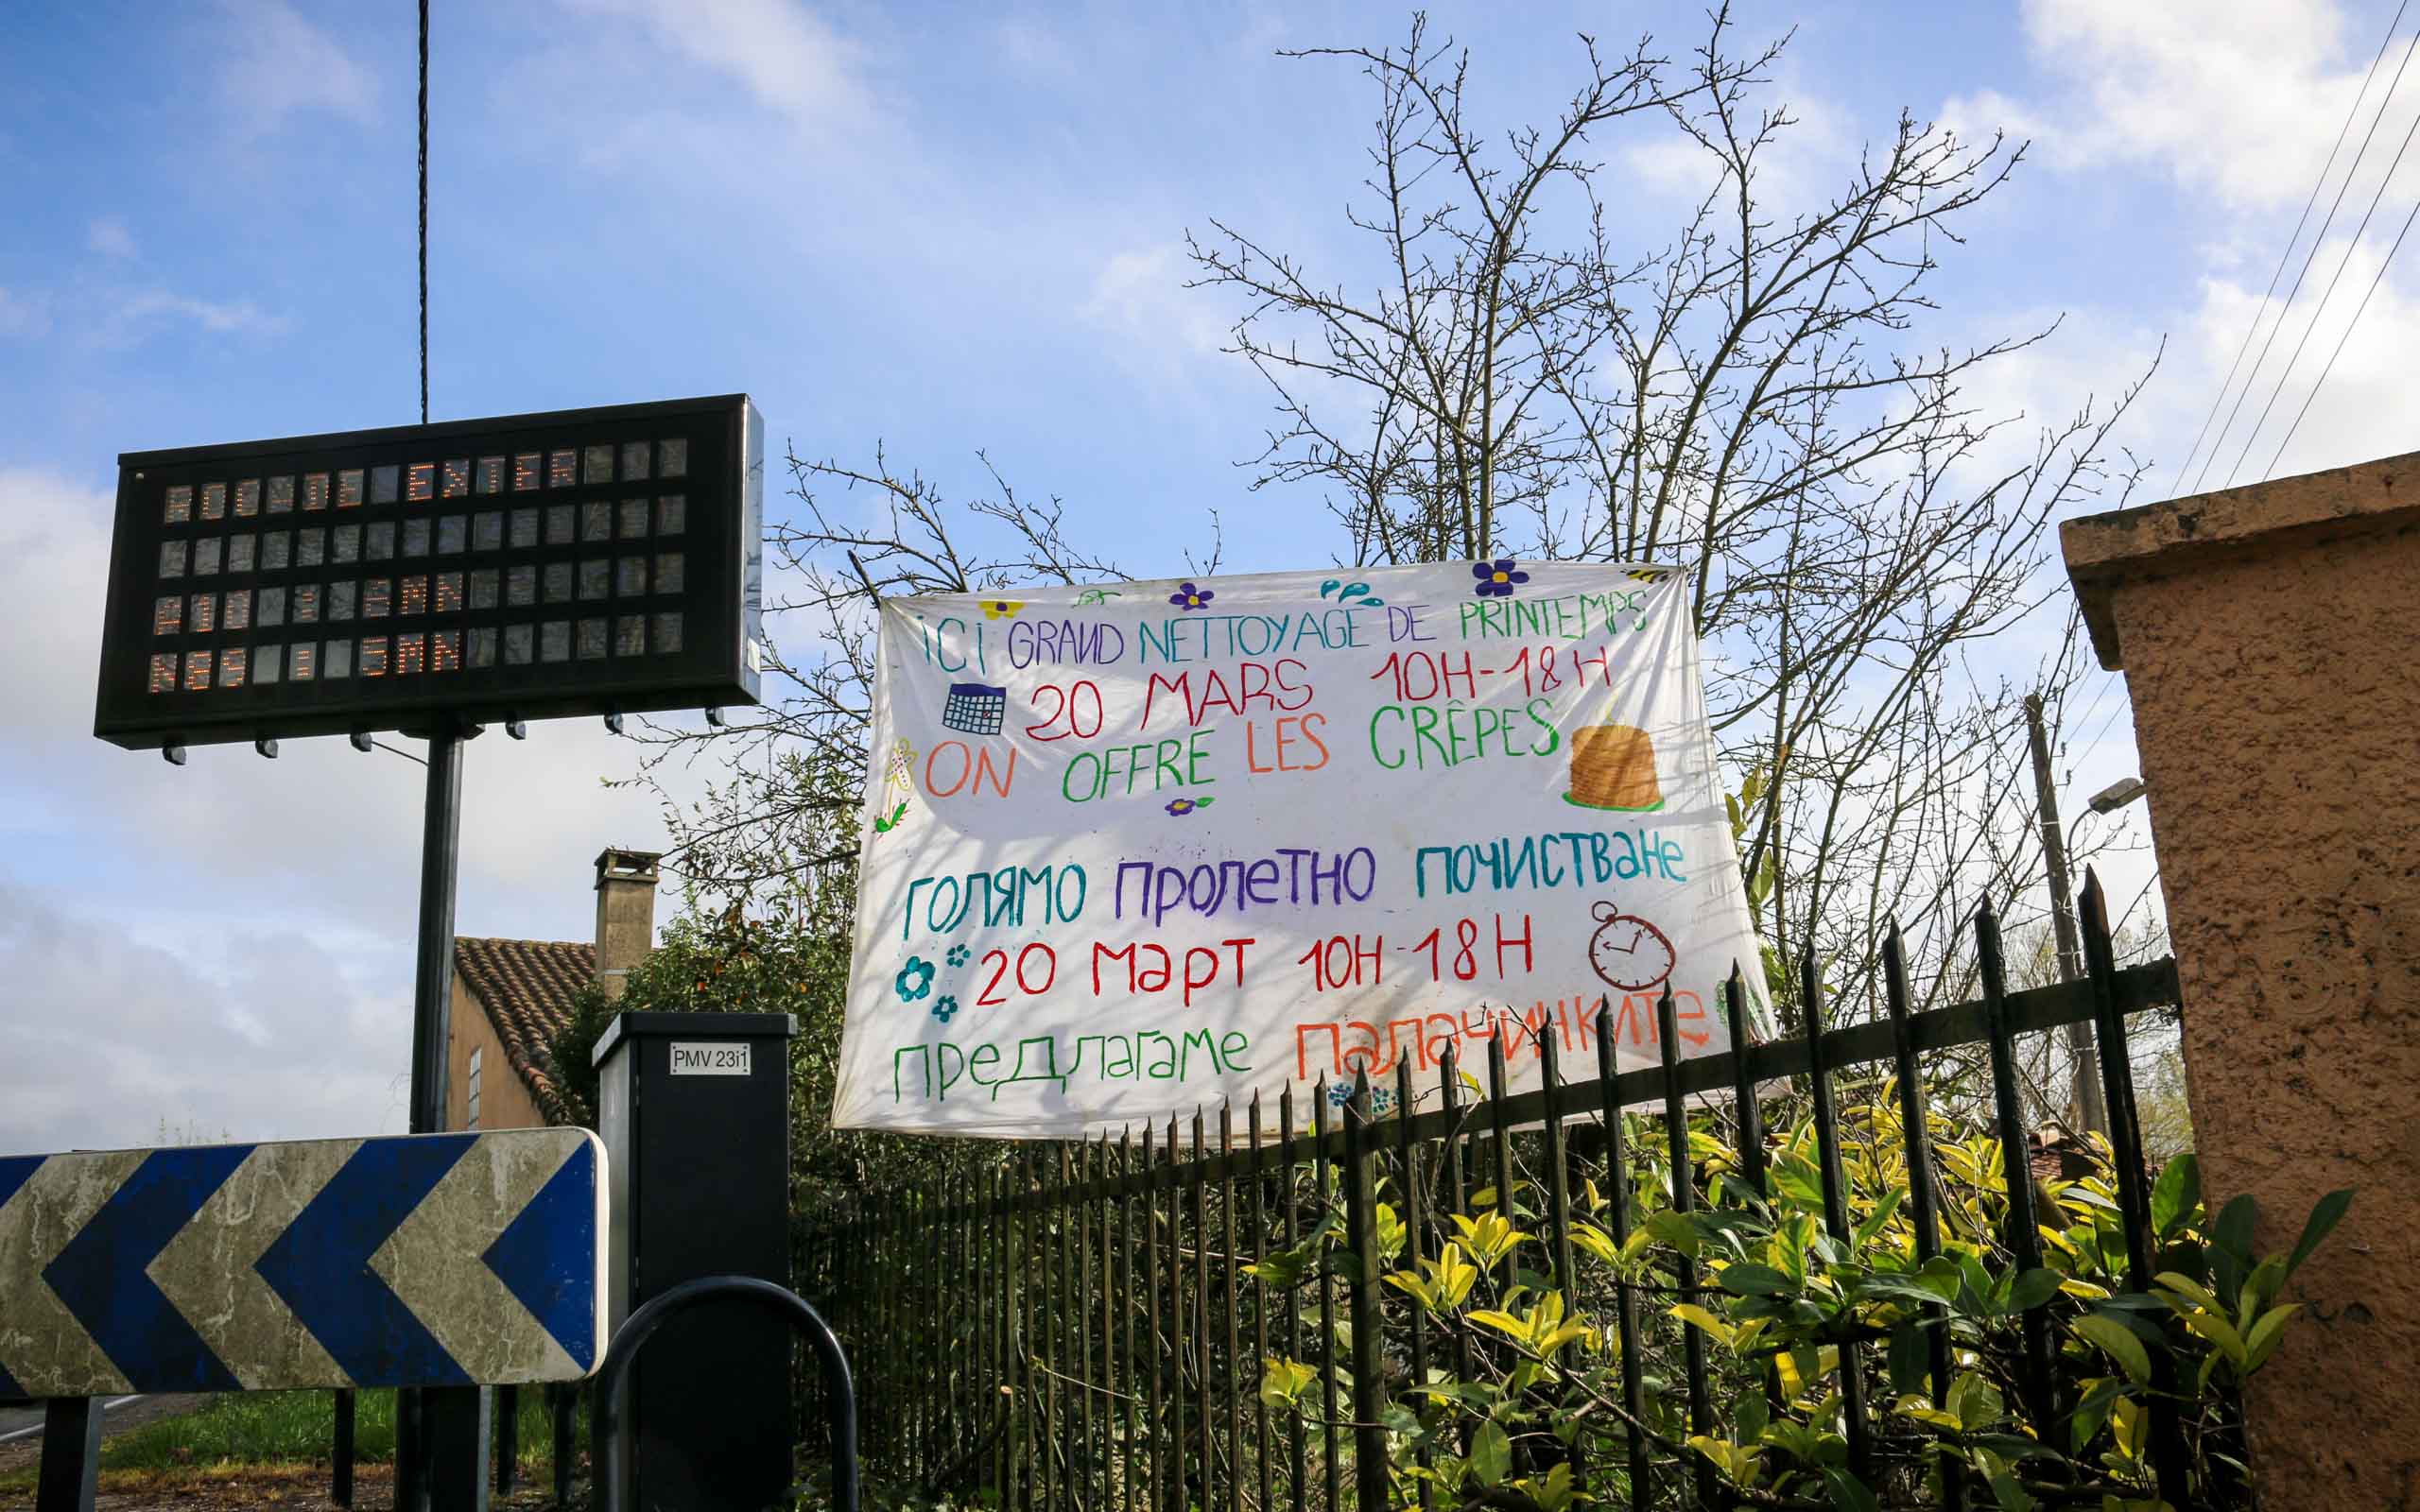 ROCADE EXTER
A10 : 2MN
N89 : 3MN
ICI GRAND NETTOYAGE DE PRINTEMPS
20 MARS 10H-18H
ON OFFRE LES CRÊPES
ГОЛЯМО ПРОЛЕТНО ПОЧИСТВАНЕ
20 МАРТ 10H-18H
ПРЕДЛАГАМЕ ПАЛАЧИНКИТЕ
PMV 23i1